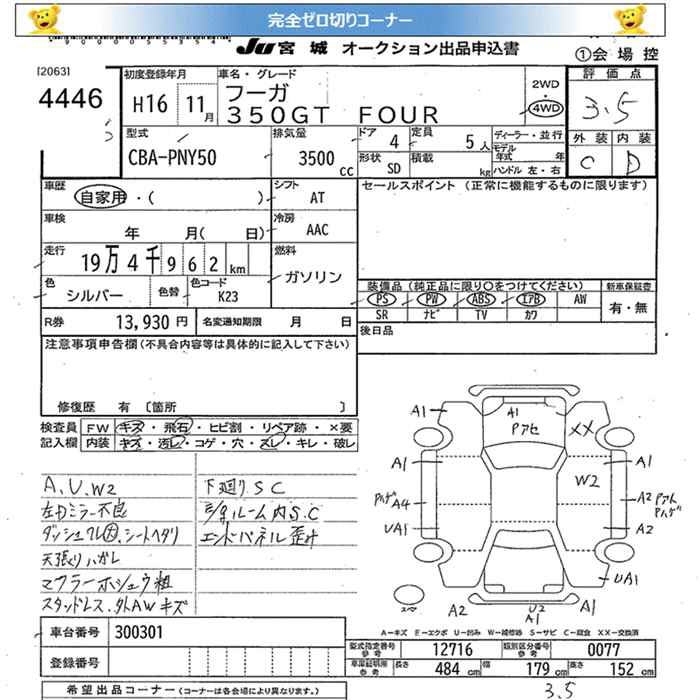 完全ゼロ切りコーナー
JU 宮城 オークション出品申込書
①会場控
[2063]
4446
初度登録年月
H16 11月
車名・グレード
フーガ
350GT FOUR
2WD
・
4WD
評価点
3.5
型式
CBA-PNY50
排気量
3500 cc
ドア 4
定員 5人
形状 SD
積載 kg
ディーラー・並行
モデル年式 年
ハンドル 左・右
外装 内装
C D
車歴
自家用・( )
シフト
AT
セールスポイント (正常に機能するものに限ります)
車検
年 月( 日)
冷房
AAC
走行
19万4千962km
燃料
ガソリン
色
シルバー
色替
色コード
K23
装備品 (純正品に限り○をつけてください)
新車保証書
PS PW ABS エアB AW
SR ナビ TV カワ
有・無
R券 13,930円 名変通知期限 月 日
後日品
注意事項申告欄(不具合内容等は具体的に記入して下さい)
修復歴 有 〔箇所 〕
検査員 FW キズ・飛石・ヒビ割・リペア跡・×要
記入欄 内装 キズ・汚レ・コゲ・穴・スレ・キレ・破レ
A、U、W2
左ドミラー不良
ダッシュワレ大、シートヘタリ
天張りハガレ
マフラーホシュウ粗
スタッドレス、外AWキズ
下廻りSC
エンジンルーム内S.C
エンドパネル歪み
A1
A1
Pアセ
XX
A1
A1
W2
Pハゲ
A4
A2 Pアト
Pハゲ
UA1
A2
UA1
A2
U2
A1
A1
A-キズ E-エクボ U-凹み W-補修跡 S-サビ C-腐食 XX-交換済
車台番号 300301
型式指定番号 参考 12716 類別区分番号 参考 0077
登録番号
車庫証明用 参考 長さ 484 cm 幅 179 cm 高さ 152 cm
希望出品コーナー (コーナーは各会場により異なります。)
3.5